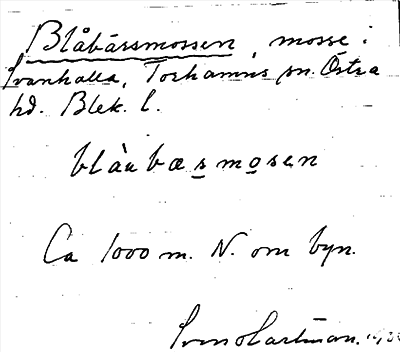 Blåbärsmossen, mosse i
Svanhalla, Torhamns sn. Östra
hd. Blek. l.
blàubæsmosen
Ca 1000 m. N. om byn.
Sven Hartman.